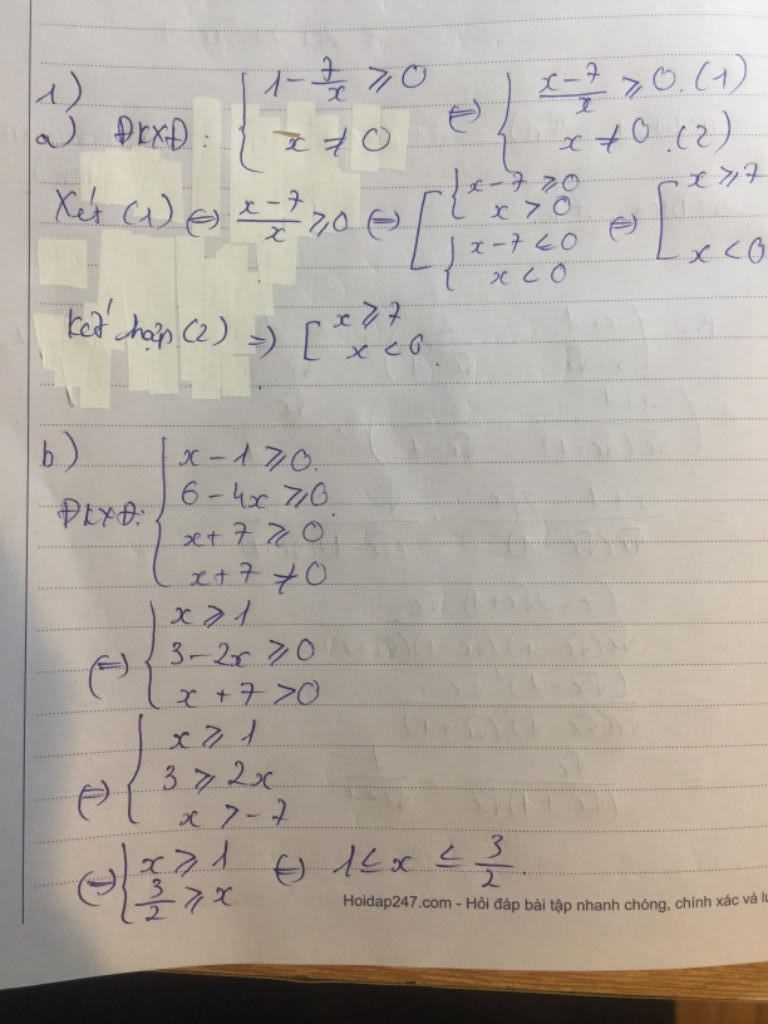 1)
a) ĐKXĐ: { 1 - 7/x ⩾ 0 ⇔ { x-7/x ⩾ 0. (1)
x ≠ 0 x ≠ 0. (2)
Xét (1) ⇔ x-7/x ⩾ 0 ⇔ [ { x-7 ⩾ 0 ⇔ [ x ⩾ 7
x > 0
{ x-7 < 0 x < 0
x < 0
Kết hợp (2) ⇒ [ x ⩾ 7
x < 0.
b)
ĐKXĐ: { x - 1 ⩾ 0.
6 - 4x ⩾ 0.
x + 7 ⩾ 0
x + 7 ≠ 0
⇔ { x ⩾ 1
3 - 2x ⩾ 0
x + 7 > 0
⇔ { x ⩾ 1
3 ⩾ 2x
x > -7
⇔ { x ⩾ 1 ⇔ 1 ≤ x ≤ 3/2.
3/2 ⩾ x
Hoidap247.com - Hỏi đáp bài tập nhanh chóng, chính xác và